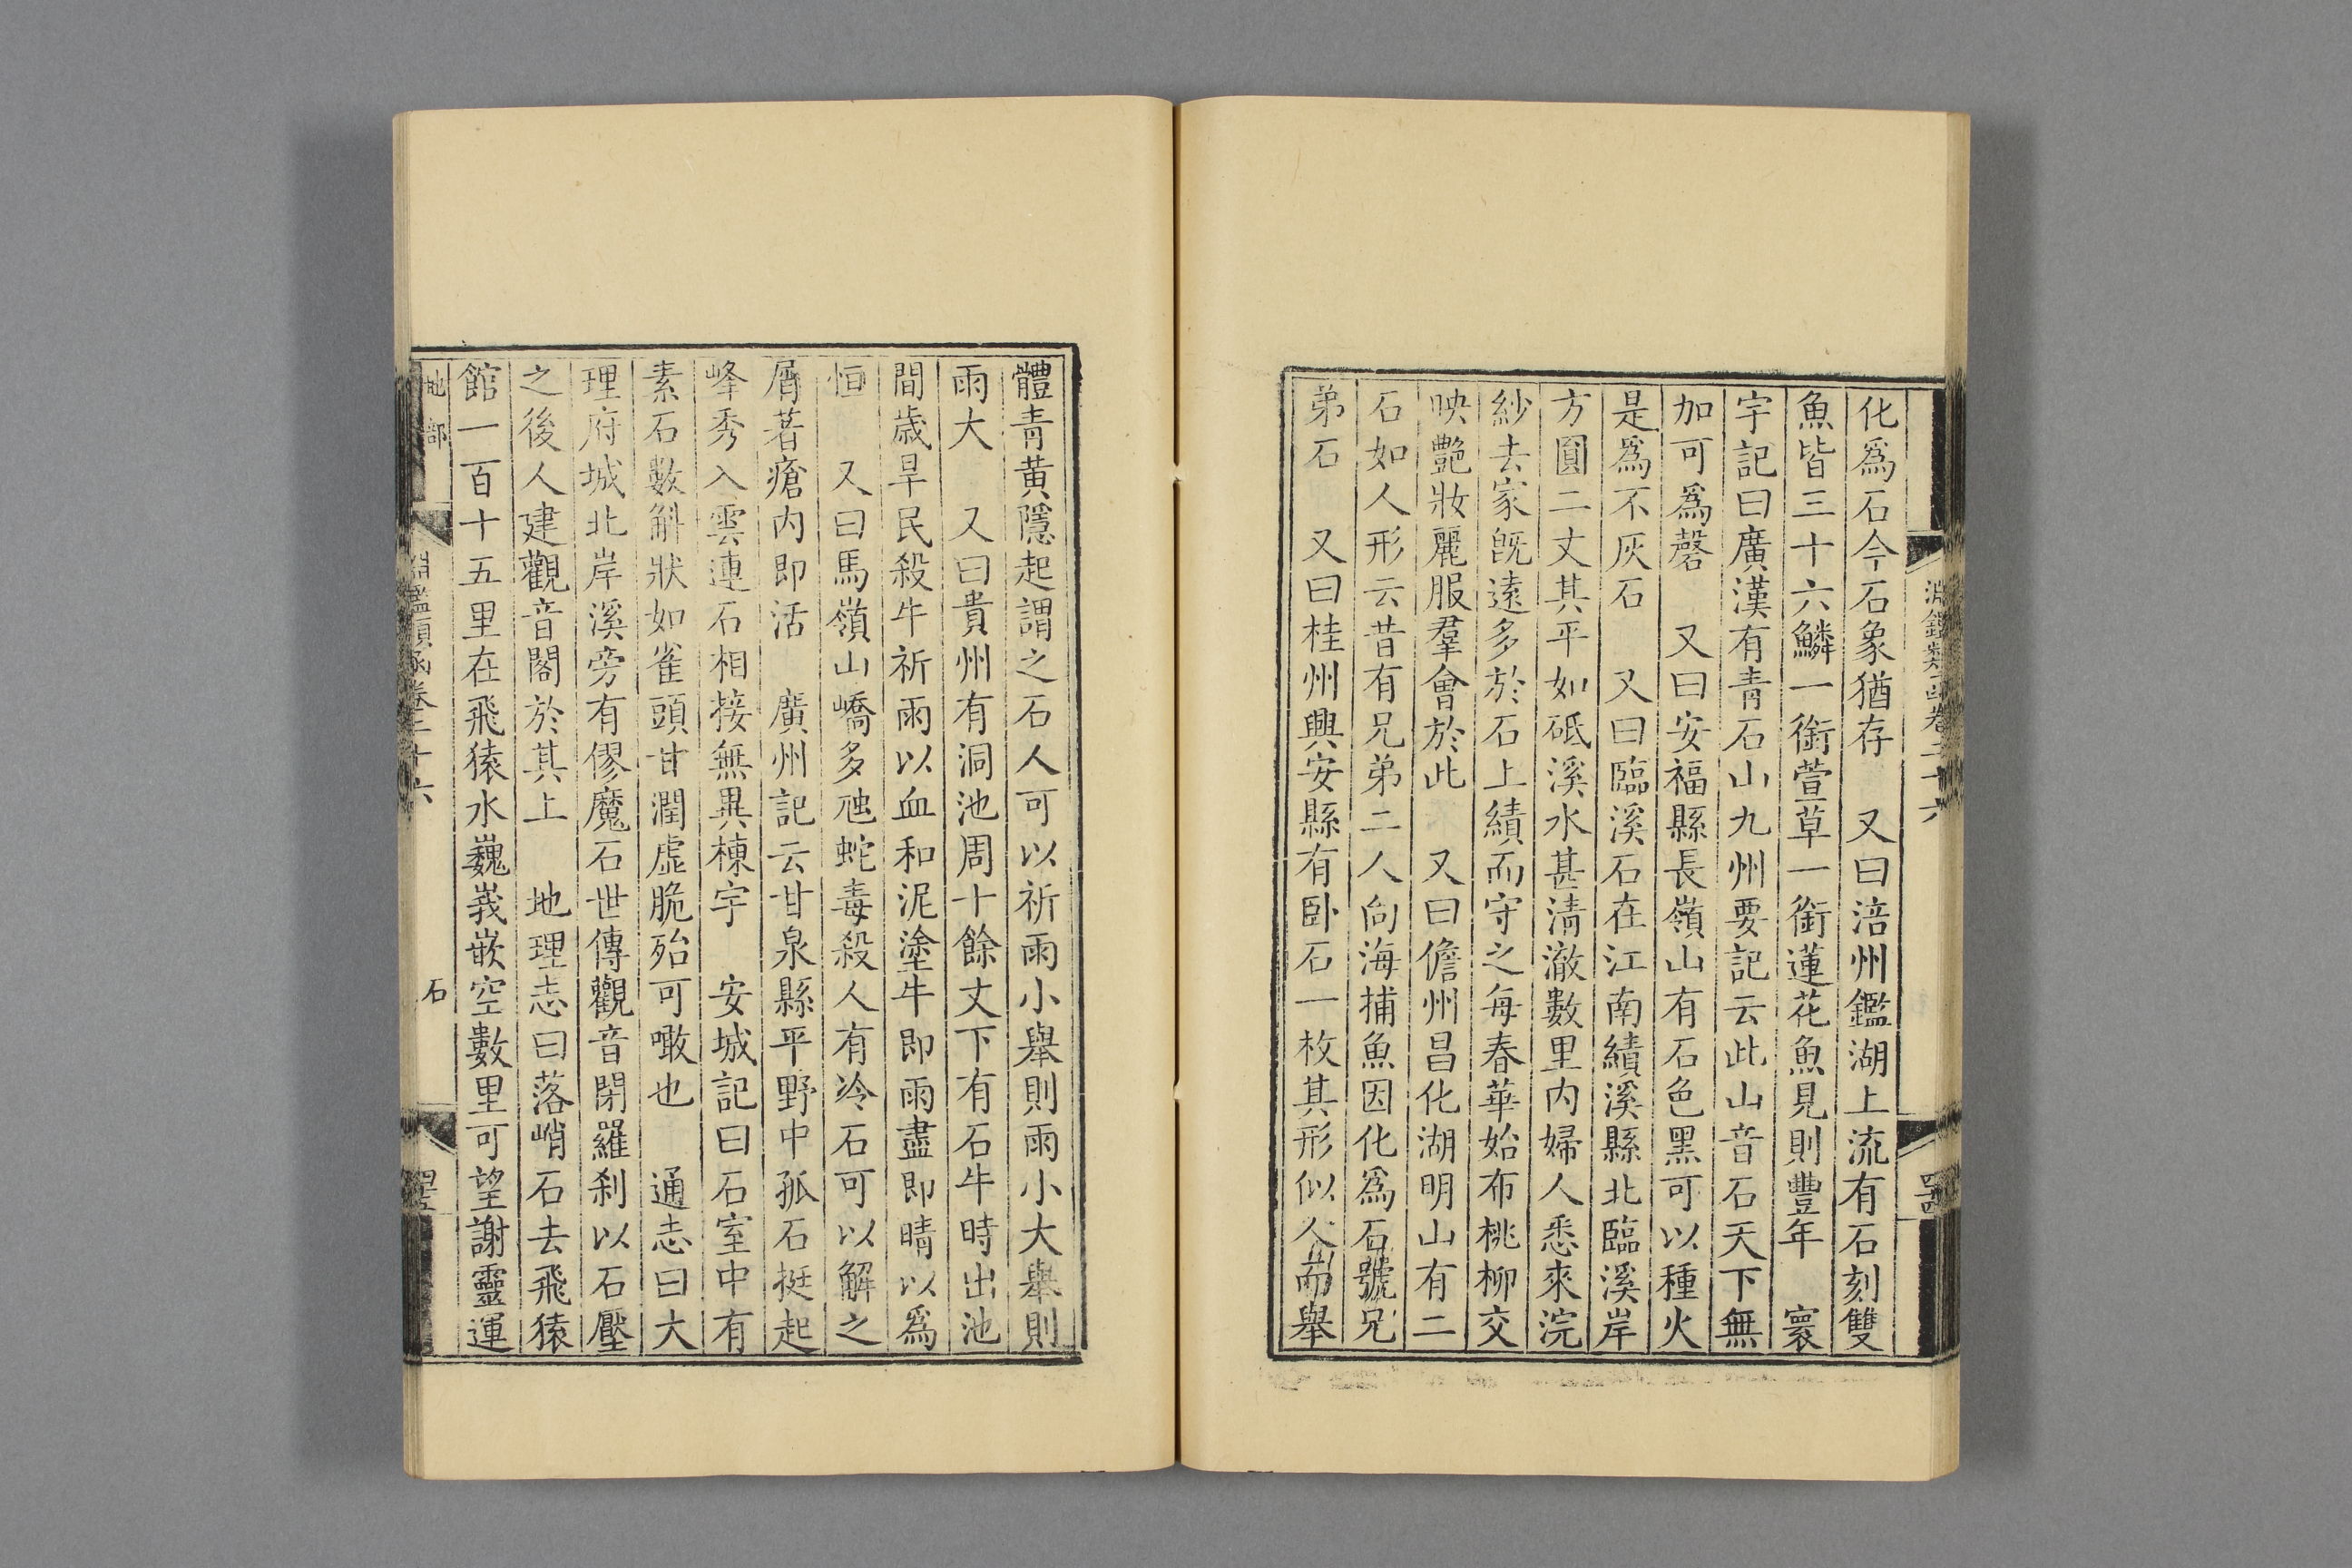 淵鑑類函卷二十六
化爲石今石象猶存　又曰涪州鑑湖上流有石刻雙
魚皆三十六鱗一銜萱草一銜蓮花魚見則豐年　寰
宇記曰廣漢有青石山九州要記云此山音石天下無
加可爲磬　又曰安福縣長嶺山有石色黑可以種火
是爲不灰石　又曰臨溪石在江南績溪縣北臨溪岸
方圓二丈其平如砥溪水甚清澈數里内婦人悉來浣
紗去家旣遠多於石上績而守之每春華始布桃柳交
映艷妝麗服羣會於此　又曰儋州昌化湖明山有二
石如人形云昔有兄弟二人向海捕魚因化爲石號兄
弟石　又曰桂州興安縣有卧石一枚其形似人而舉
體青黄隱起謂之石人可以祈雨小舉則雨小大舉則
雨大　又曰貴州有洞池周十餘丈下有石牛時出池
間歲旱民殺牛祈雨以血和泥塗牛即雨盡即晴以爲
恒　又曰馬嶺山嶠多虺蛇毒殺人有冷石可以解之
屑著瘡内即活　廣州記云甘泉縣平野中孤石挺起
峰秀入雲連石相接無異棟宇　安城記曰石室中有
素石數斛狀如雀頭甘潤虛脆殆可噉也　通志曰大
理府城北岸溪旁有僇魔石世傳觀音閉羅刹以石壓
之後人建觀音閣於其上　地理志曰落峭石去飛猿
館一百十五里在飛猿水巍峩嵌空數里可望謝靈運
地部
淵鑑類函卷二十六
石